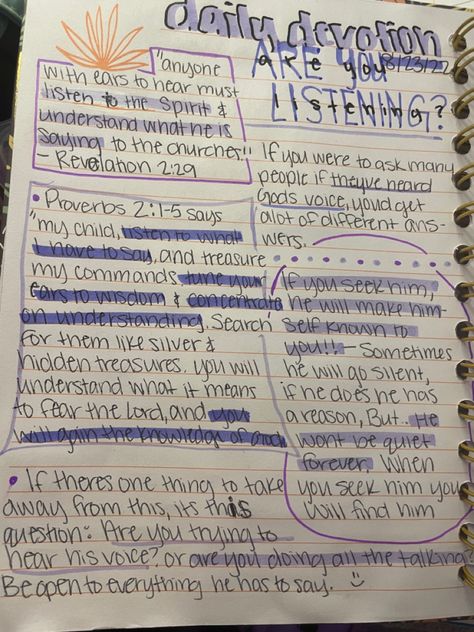 daily devotion
ARE you
8/23/22
LISTENING?
"anyone
with ears to hear must
listen to the Spirit &
understand what he is
saying to the churches"
- Revelation 2:29
If you were to ask many
people if they've heard
Gods voice, you'd get
alot of different ans-
wers.
• Proverbs 2:1-5 says
"my child, listen to what
I have to say, and treasure
my commands. tune your
ears to wisdom & concentrate
on understanding. Search
for them like silver &
hidden treasures. you will
understand what it means
to fear the Lord, and you
will gain the knowledge of God
If you seek him,
he will make him-
self known to
you!! - Sometimes
he will go silent,
if he does he has
a reason, But.. He
wont be quiet
forever. When
you seek him you
will find him
• If theres one thing to take
away from this, its this
question: Are you trying to
hear his voice? or are you doing all the talking?
Be open to everything he has to say. :)